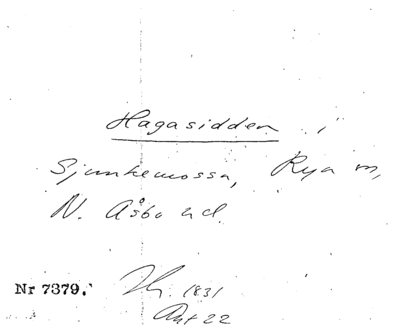 Hagasidden i
Sjunkemossa, Rya sn,
N. Åsbo hd.
Nr 7379.
1831
Akt 22